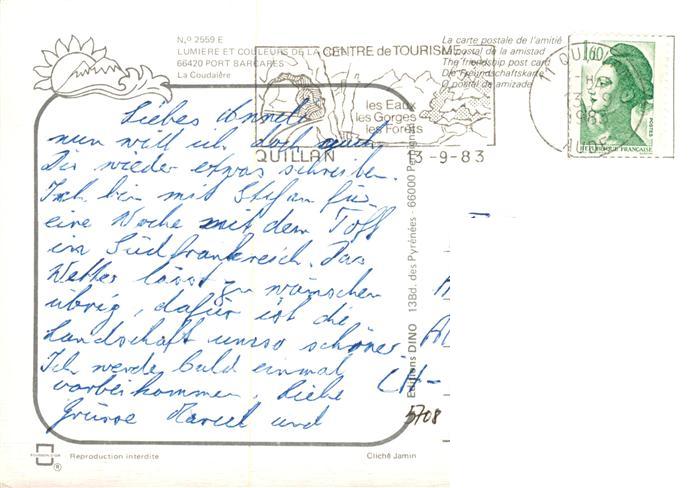 N.º 2559 E
LUMIERE ET COULEURS DE LA
66420 PORT BARCARES
La Coudalère
CENTRE de TOURISME
La carte postale de l'amitié
postal de la amistad
The friendship post card
Die Freundschaftskarte
O postal de amizade
les Eaux
les Gorges
les Forêts
QUILLAN 13-9-83
11 QUILLAN
1,60
POSTES
REPUBLIQUE FRANÇAISE
Liebes Anneli
nun will ich doch auch
Dir wieder etwas schreiben.
Ich bin mit Stefan für
eine Woche mit dem Töff
in Südfrankreich. Das
Wetter lässt zu wünschen
übrig, dafür ist die
Landschaft umso schöner.
Ich werde bald einmal
vorbeikommen, Liebe
Grüsse Marcel und
Editions DINO 13Bd. des Pyrénées - 66000 Perpignan
CH-
5708
Reproduction interdite
Cliché Jamin